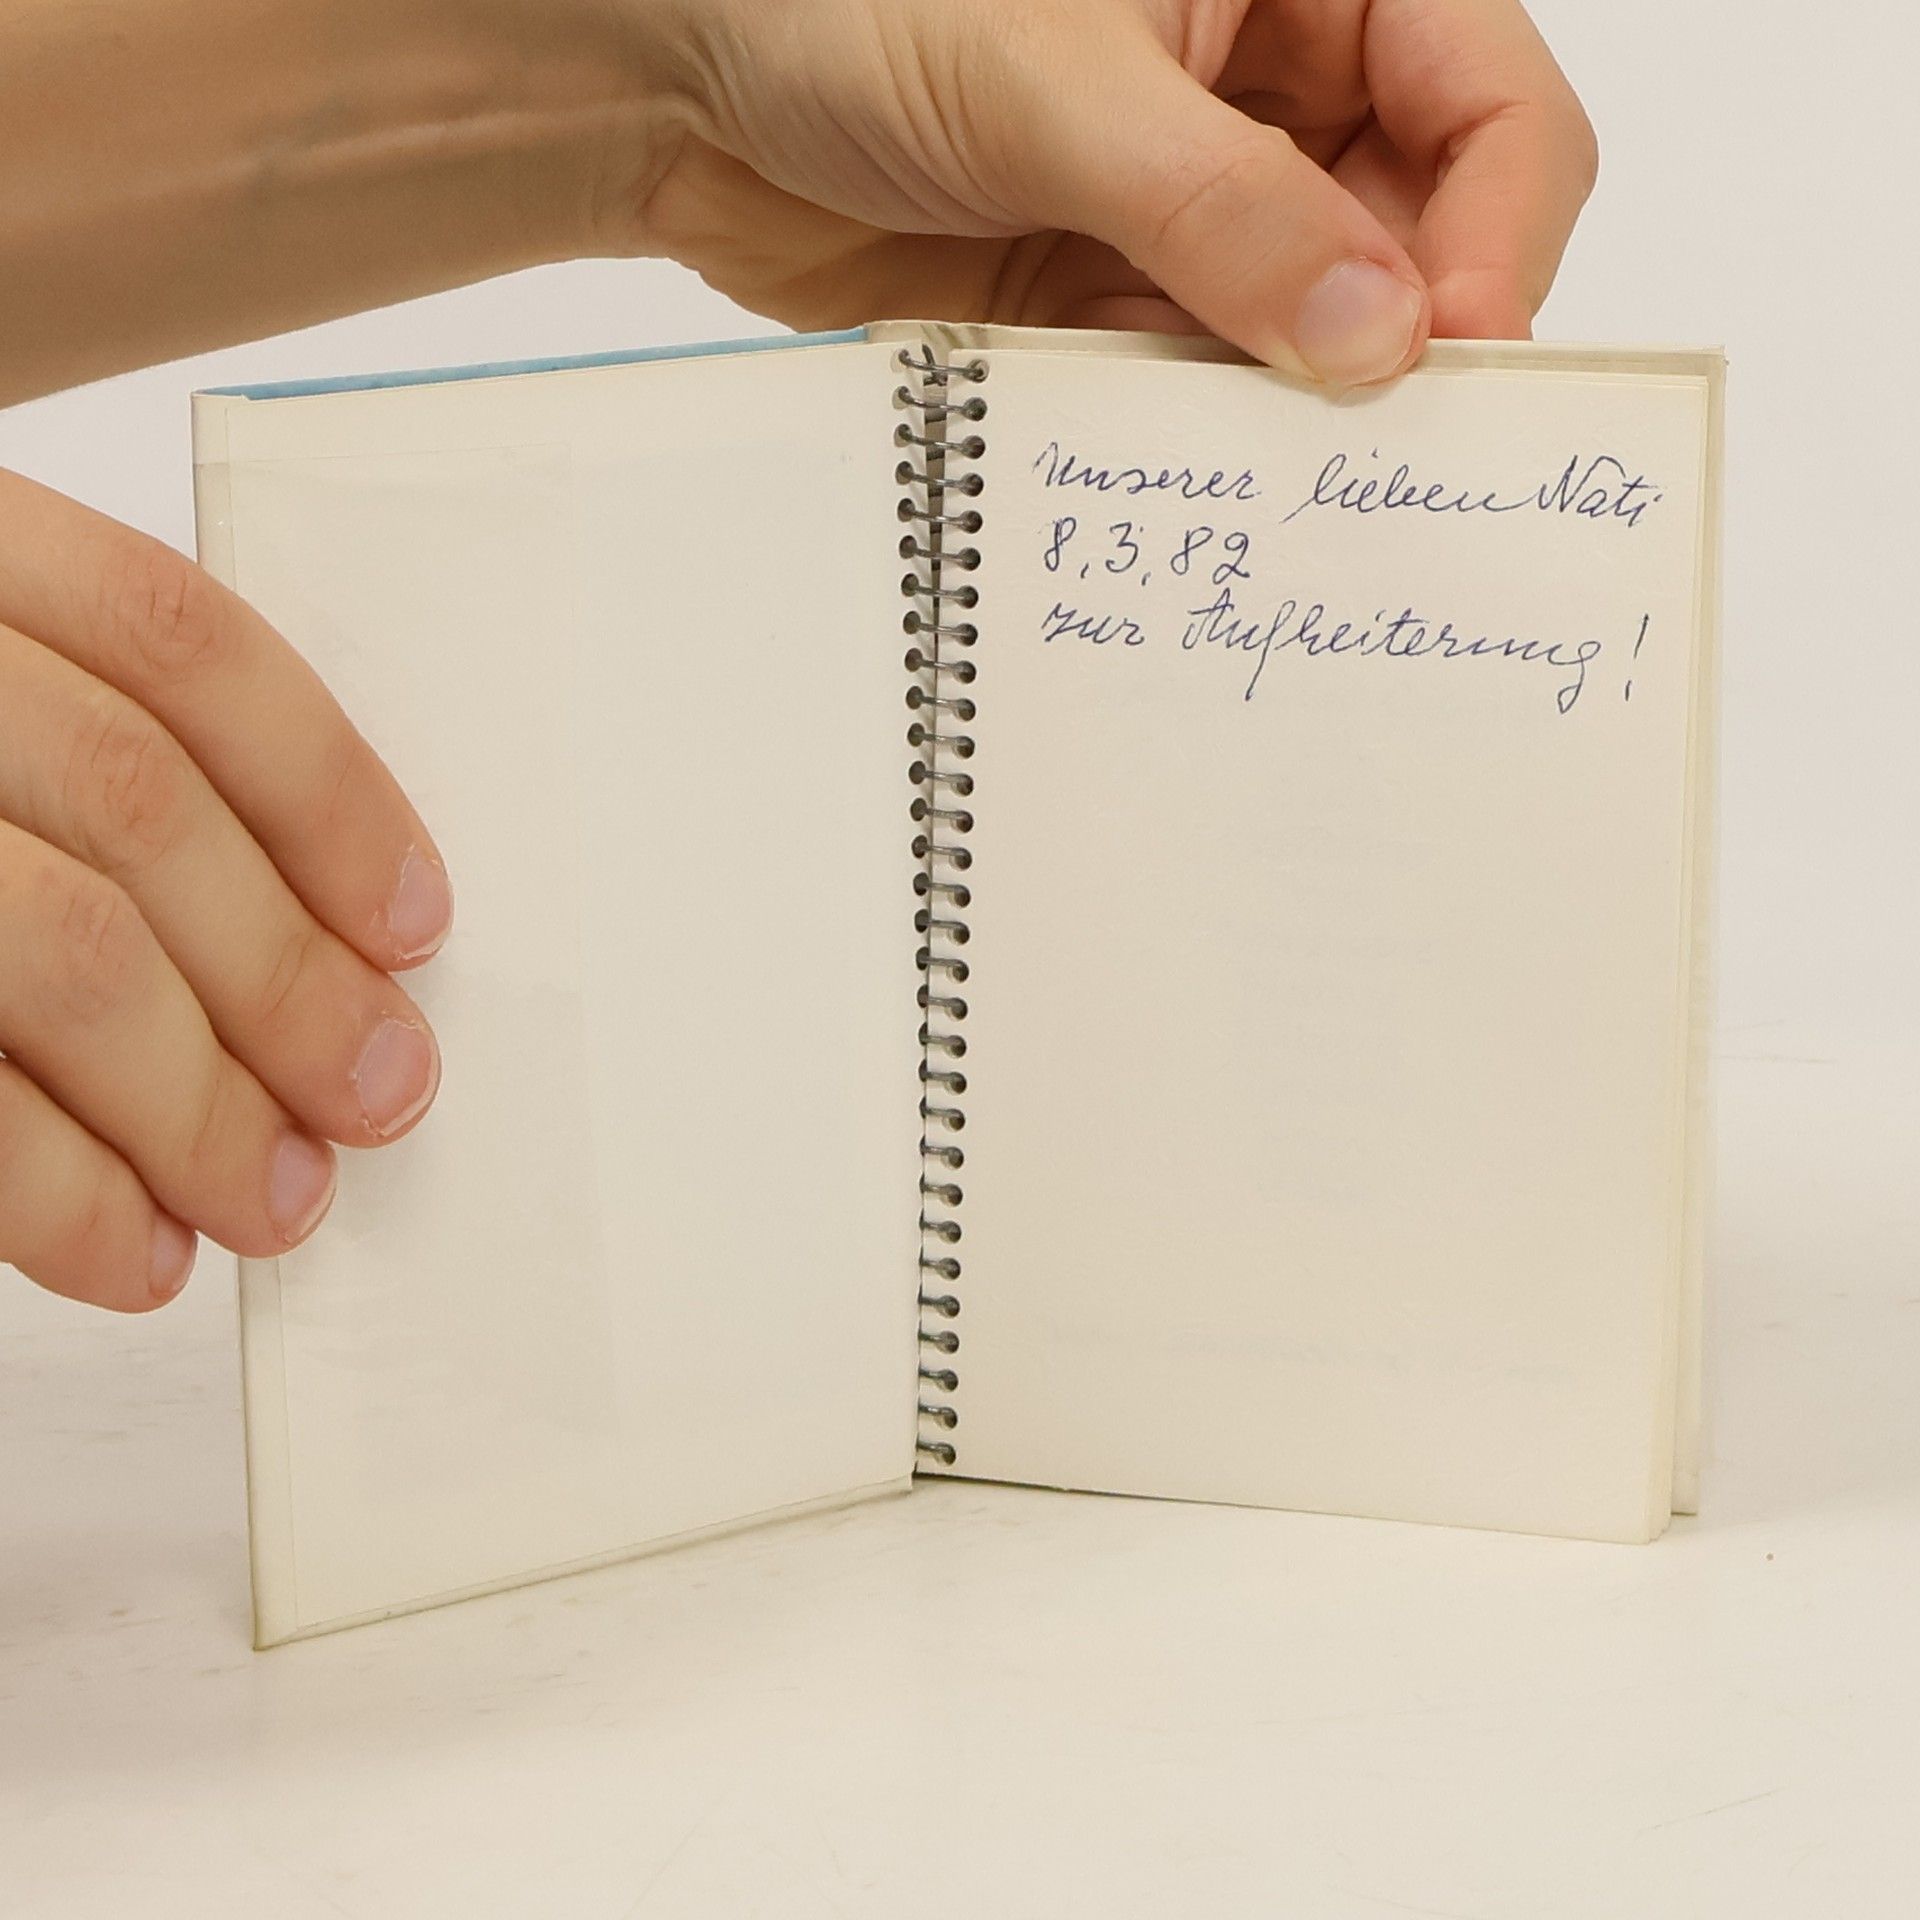 Unserer lieben Nati
8.3.82
zur Aufheiterung!